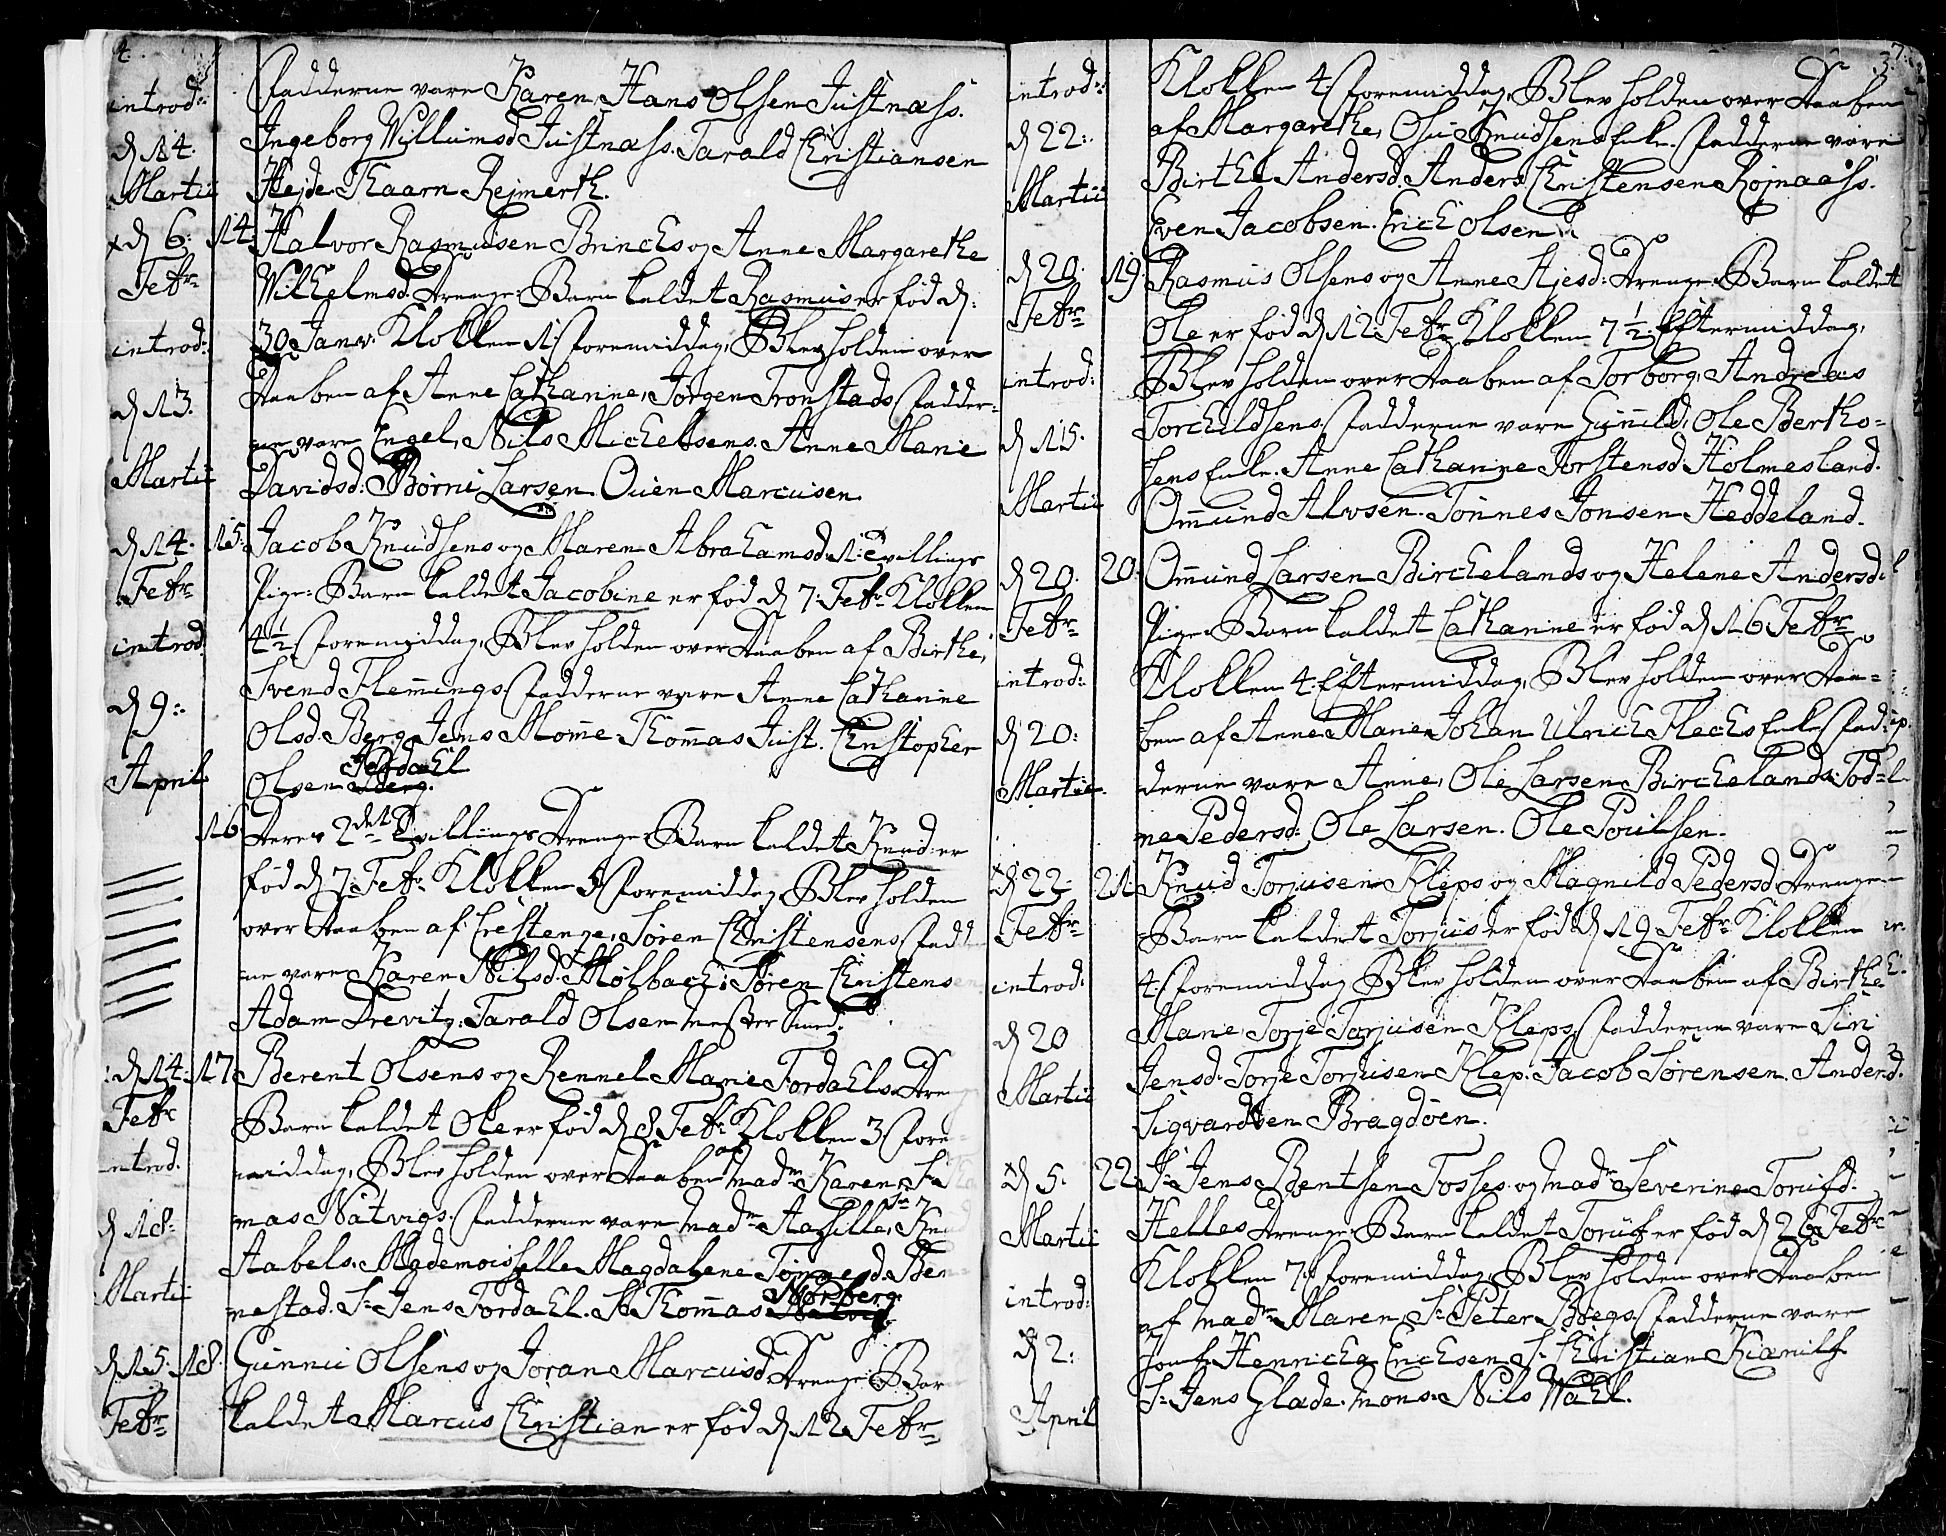 4
introd:
d 14.
Martii
Fadderne vare Karen, Hans Olsen Justnæss.
Ingeborg Willumsd. Justnæss. Tarald Christiansen
Hejde. Thaarn Rejmerth.
d 6: 14.
Febr.
introd:
d 13.
Martii
Halvor Rasmusen Brincks og Anne Margarethe
Wilhelmsd. Drenge-Barn kaldet Rasmus er fød d.
30 Janv: Klokken 1 Foremiddag, Blev holden over
Daaben af Anne Catharine, Jørgen Tronstads, Fadder-
ne vare Engel, Nils Michelsens. Anne Marie
Davidsd. Børni Larsen. Ouen Marcusen.
d 14. 15.
Febr
introd.
d 9:
April
Jacob Knudsens og Maren Abrahamsd. 1: Tvillings
Pige-Barn kaldet Jacobine er fød d 7: Febr. Klokken
4½ Foremiddag, Blev holden over Daaben af Birthe,
Svend Flemmings. Fadderne vare Anne Catharine
Olsd. Berg. Jens Momme. Thommas Just. Christopher
Olsen Tordael
16.
Deres 2det Tvillings Drenge-Barn kaldet Knud er
fød d 7: Febr. Klokken 5 Foremiddag Blev holden
over Daaben af Crestenze, Søren Christensens, Fadd
ne vare Karen Nilsd. Mølbach: Søren Christensen
Adam Drevitz. Tarald Olsen Mester Smed.
d 14. 17
Febr
introd.
d 18:
Martii
Berent Olsens og Rennel Marie Tordaels Dreng
Barn kaldet Ole er fød d 8 Febr. Klokken 3 Fore-
middag, Blev holden over Daaben af Madm Karen, Sr
mas Natvigs. Fadderne vare Madm Aasille, Sr Knud
Aabels. Mademoiselle Magdalene Ben-
nestad. Sr Jens Tordael. Sr Thommas Nørberg.
d 15. 18.
Febr.
Gunnu Olsens og Joran Marcusd. Drenge-Bar
kaldet Marcus Christian er fød d 12 Febr.
3.
7
introd:
d 22:
Martii
Klokken 4 Foremiddag, Blev holden over Daaben
af Margarethe, Olu Knudsens Enke. Fadderne vare
Birthe Andersd. Anders Christensen Røjnaass.
Even Jacobsen. Erich Olsen
d 20. 19.
Febr
introd:
d 15.
Martii
Rasmus Olsens og Anne Ajesd. Drenge-Barn kaldet
Ole er fød d 12. Febr. Klokken 7½ Eftermiddag,
Blev holden over Daaben af Torborg, Andreas
Torchildsens, Fadderne vare Gunnild, Ole Bertho-
sens Enke. Anne Catharine Torstensd. Holmesland.
Ommund Alvsen. Tønnes Jonsen Heddeland.
d 20. 20.
Febr.
introd:
d 20:
Martii
Ommund Larsen Birchelands og Helene Andersd:
Pige-Barn kaldet Catharine er fød d 16 Febr.
Klokken 4. Eftermiddag, Blev holden over Daa-
ben af Anne Marie, Johan Ulrich Flechs Enke, Fad-
derne vare Anne, Ole Larsen Birchelands. Tod-
ne Pedersd: Ole Larsen. Ole Poulsen.
d 22 21.
Febr.
introd:
d 20
Martii
Knud Torjusen Kleps og Magnild Pedersd. Drenge
Barn kaldet Torjus er fød d 19 Febr. Klokken
4. Foremiddag Blev holden over Daaben af Birthe
Marie, Torje Torjusen Kleps, Fadderne vare Siri
Jensd. Torje Torjusen Klep. Jacob Sørensen. Anders
Sigvardsen Bragdøen.
d 5. 22.
Martii
introd:
d 2:
April
Sr Jens Bentsen Fosses og Madm Severine Torufd.
Helles Drenge-Barn kaldet Toruf er fød d 26 Febr.
Klokken 7 Foremiddag, Blev holden over Daaben
af Madm Maren, Sr Peter Boegs. Fadderne vare
Jomf. Henricha Erichsen. Sr Christian Kianilf
Sr Jens Glade. Mons: Nils Wahl.